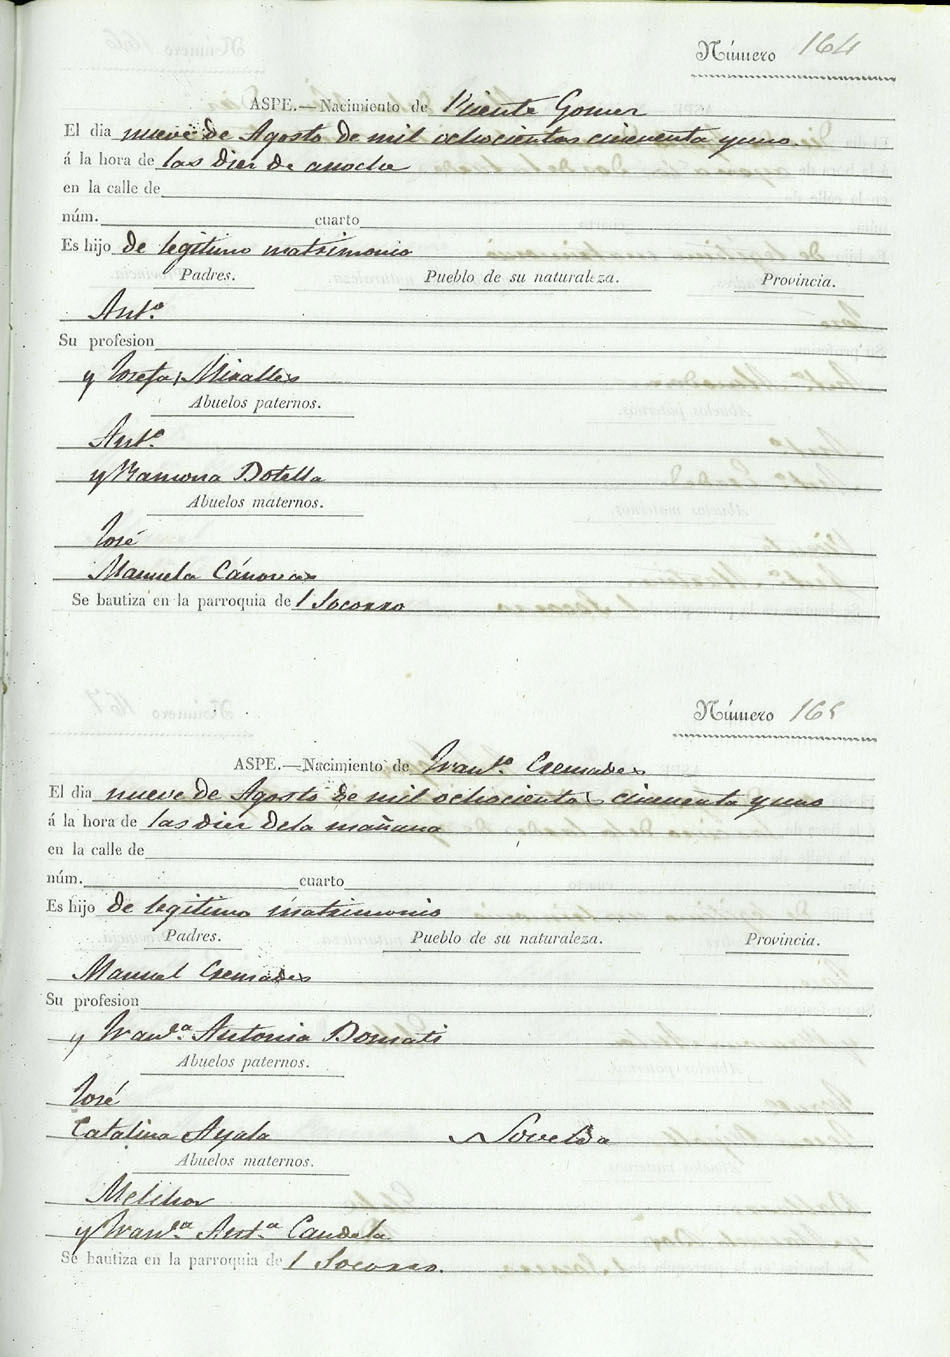 Número 164
ASPE.—Nacimiento de Vicente Gomez
El dia nueve de Agosto de mil ochocientos cincuenta y uno
á la hora de las diez de anoche
en la calle de
núm. cuarto
Es hijo de legitimo matrimonio
Padres. Pueblo de su naturaleza. Provincia.
Antº
Su profesion
y Josefa Miralles
Abuelos paternos.
Antº
y Ramona Botella
Abuelos maternos.
José
Manuela Cánovas
Se bautiza en la parroquia del Socorro
Número 165
ASPE.—Nacimiento de Franᶜº Cremades
El dia nueve de Agosto de mil ochocientos cincuenta y uno
á la hora de las diez dela mañana
en la calle de
núm. cuarto
Es hijo de legitimo matrimonio
Padres. Pueblo de su naturaleza. Provincia.
Manuel Cremades
Su profesion
y Franᶜª Antonia
Abuelos paternos.
José
Catalina Ayala Novelda
Abuelos maternos.
Melchor
y Franᶜª Antª Candela
Se bautiza en la parroquia del Socorro.